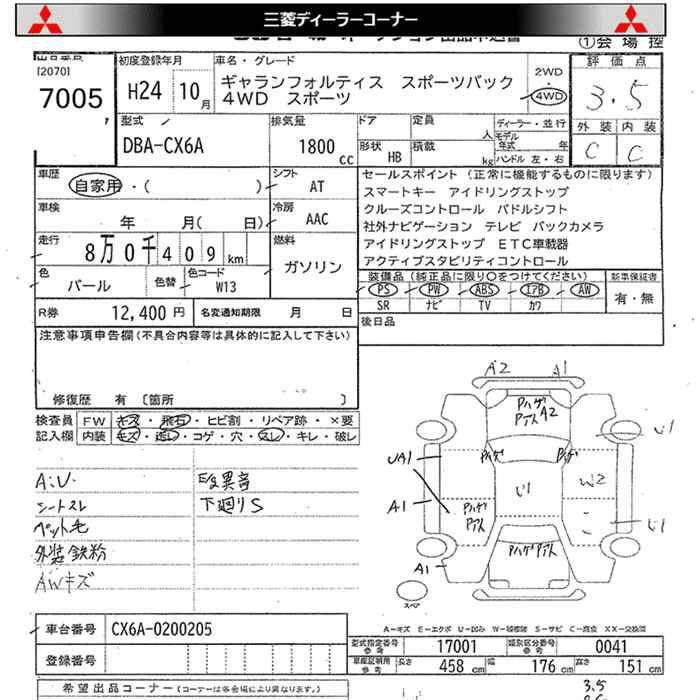 三菱ディーラーコーナー
①会場控
[2070]
7005
初度登録年月
H24 10月
車名・グレード
ギャランフォルティス スポーツバック
4WD スポーツ
2WD
・
4WD
評価点
3.5
外装 内装
C C
型式
DBA-CX6A
排気量
1800 cc
ドア
定員
人
形状
HB
積載
kg
ディーラー・並行
モデル年式 年
ハンドル 左・右
車歴
自家用・( )
シフト
AT
車検
年 月( 日)
冷房
AAC
走行
8万0千409km
燃料
ガソリン
色
パール
色替
色コード
W13
R券 12,400円
名変通知期限 月 日
セールスポイント (正常に機能するものに限ります)
スマートキー アイドリングストップ
クルーズコントロール パドルシフト
社外ナビゲーション テレビ バックカメラ
アイドリングストップ ETC車載器
アクティブスタビリティコントロール
装備品(純正品に限り○をつけてください)
PS PW ABS エアB AW
SR ナビ TV カワ
新車保証書
有・無
後日品
注意事項申告欄(不具合内容等は具体的に記入して下さい)
修復歴 有 〔箇所 〕
検査員記入欄
FW キズ・飛石・ヒビ割・リペア跡・×要
内装 キズ・汚レ・コゲ・穴・スレ・キレ・破レ
シートスレ
ペット毛
外装鉄粉
AWキズ
段異音
下廻りS
A2 A1
ハゲ
A2
UA1
A1
U1
W2
U1
A1
スペア
A-キズ E-エクボ U-凹み W-補修跡 S-サビ C-腐食 XX-交換済
車台番号 CX6A-0200205
登録番号
型式指定番号 参考 17001
類別区分番号 参考 0041
車庫証明用 参考 長さ 458 cm 幅 176 cm 高さ 151 cm
希望出品コーナー(コーナーは各会場により異なります。)
3.5